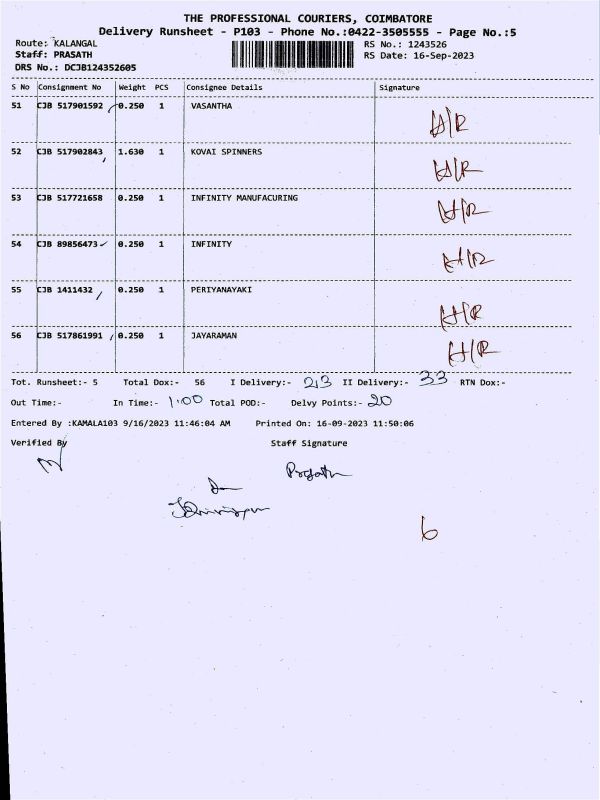 THE PROFESSIONAL COURIERS, COIMBATORE
Delivery Runsheet - P103 - Phone No.:0422-3505555 - Page No.:5
Route: KALANGAL RS No.: 1243526
Staff: PRASATH RS Date: 16-Sep-2023
DRS No.: DCJB124352605
S No Consignment No Weight PCS Consignee Details Signature
51 CJB 517901592 0.250 1 VASANTHA H/R
52 CJB 517902843 1.630 1 KOVAI SPINNERS H/R
53 CJB 517721658 0.250 1 INFINITY MANUFACURING H/R
54 CJB 89856473 0.250 1 INFINITY H/R
55 CJB 1411432 0.250 1 PERIYANAYAKI H/R
56 CJB 517861991 0.250 1 JAYARAMAN H/R
Tot. Runsheet:- 5 Total Dox:- 56 I Delivery:- 23 II Delivery:- 33 RTN Dox:-
Out Time:- In Time:- 1:00 Total POD:- Delvy Points:- 20
Entered By :KAMALA103 9/16/2023 11:46:04 AM Printed On: 16-09-2023 11:50:06
Verified By Staff Signature
Prasath
6